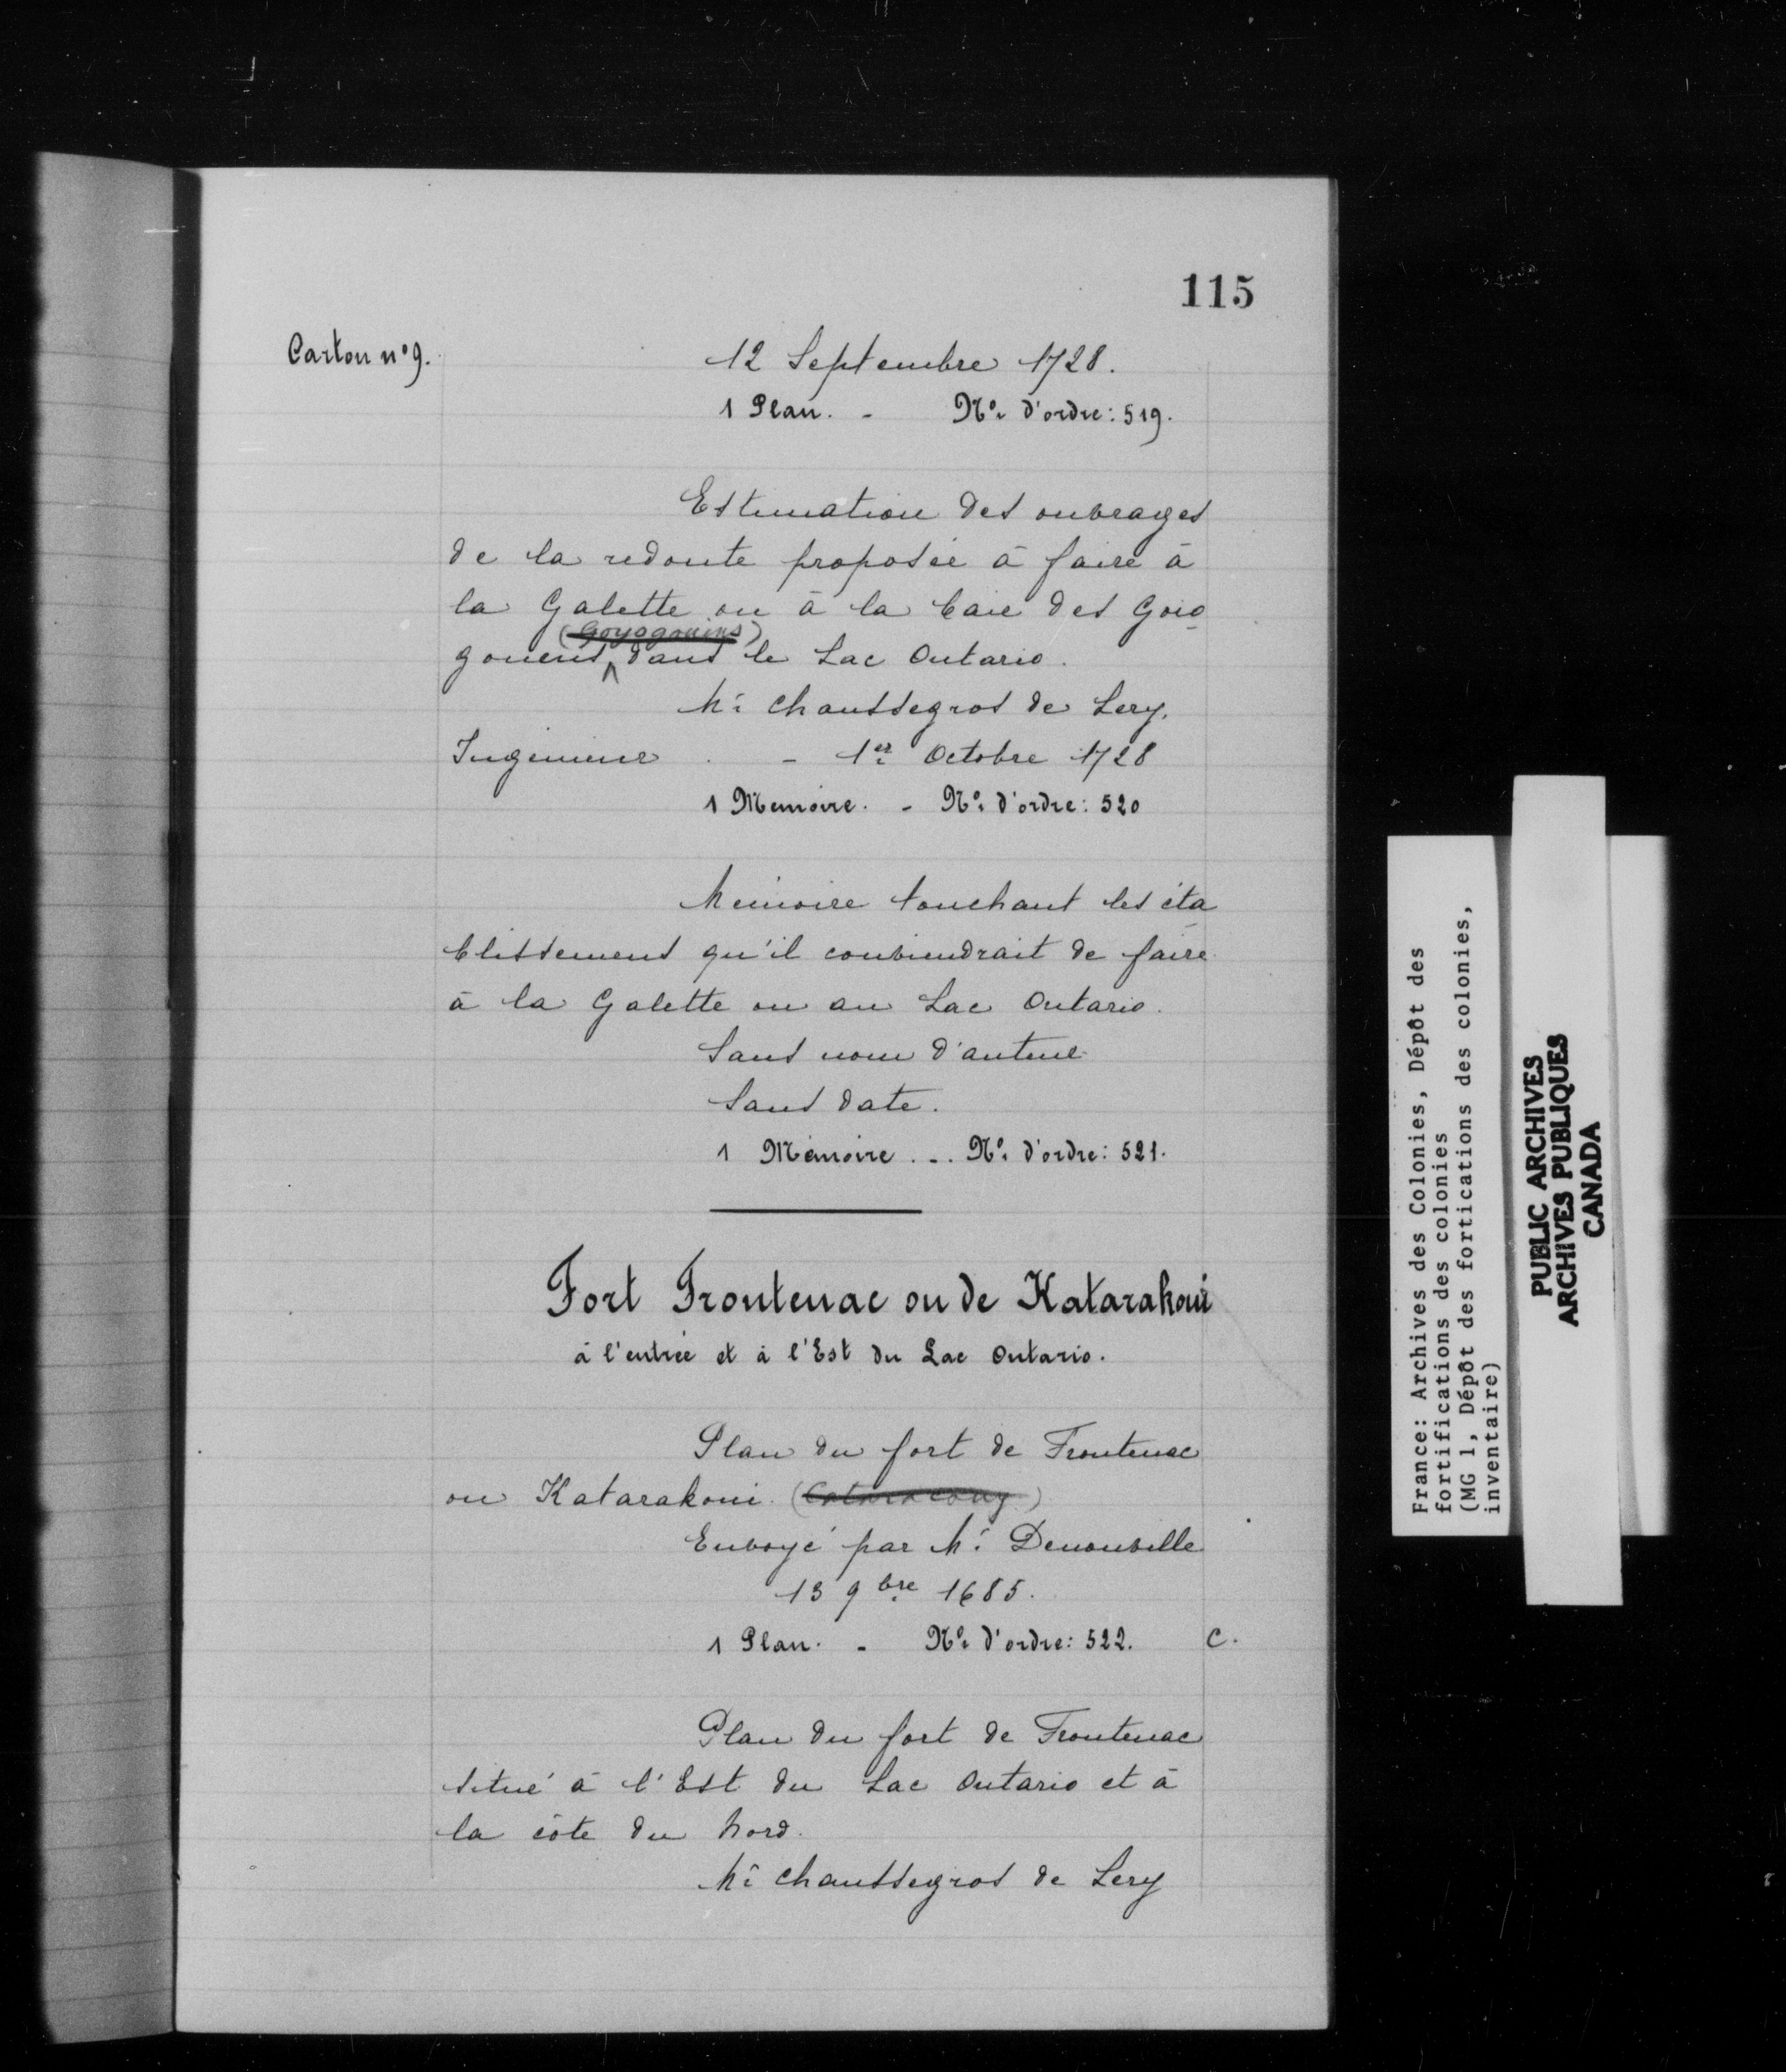 115
Carton nº 9.
12 Septembre 1728.
1 Plan. - Nº d'ordre: 519.
Estimation des ouvrages
de la redoute proposée à faire à
la Galette ou à la baie des Goio-
gouens (Goyogouins) dans le Lac Ontario.
Mr Chaussegros de Lery,
Ingénieur. - 1er Octobre 1728
1 Memoire. - Nº d'ordre: 520
Mémoire touchant les éta
blissement qu'il conviendrait de faire
à la Galette ou au Lac Ontario.
Sans nom d'auteur
Sans date.
1 Mémoire . - . Nº d'ordre: 521.
Fort Frontenac ou de Katarakoui
à l'entrée et à l'Est du Lac Ontario.
Plan du fort de Frontenac
ou Katarakoui. (Cataracouy)
Envoyé par Mr Denonville
13 9bre 1685.
1 Plan. - Nº d'ordre: 522. C.
Plan du fort de Frontenac
situé à l'Est du Lac Ontario et à
la côte du Nord.
Mr Chaussegros de Lery
France: Archives des Colonies, Dépôt des
fortifications des colonies
(MG 1, Dépôt des fortications des colonies,
inventaire)
PUBLIC ARCHIVES
ARCHIVES PUBLIQUES
CANADA